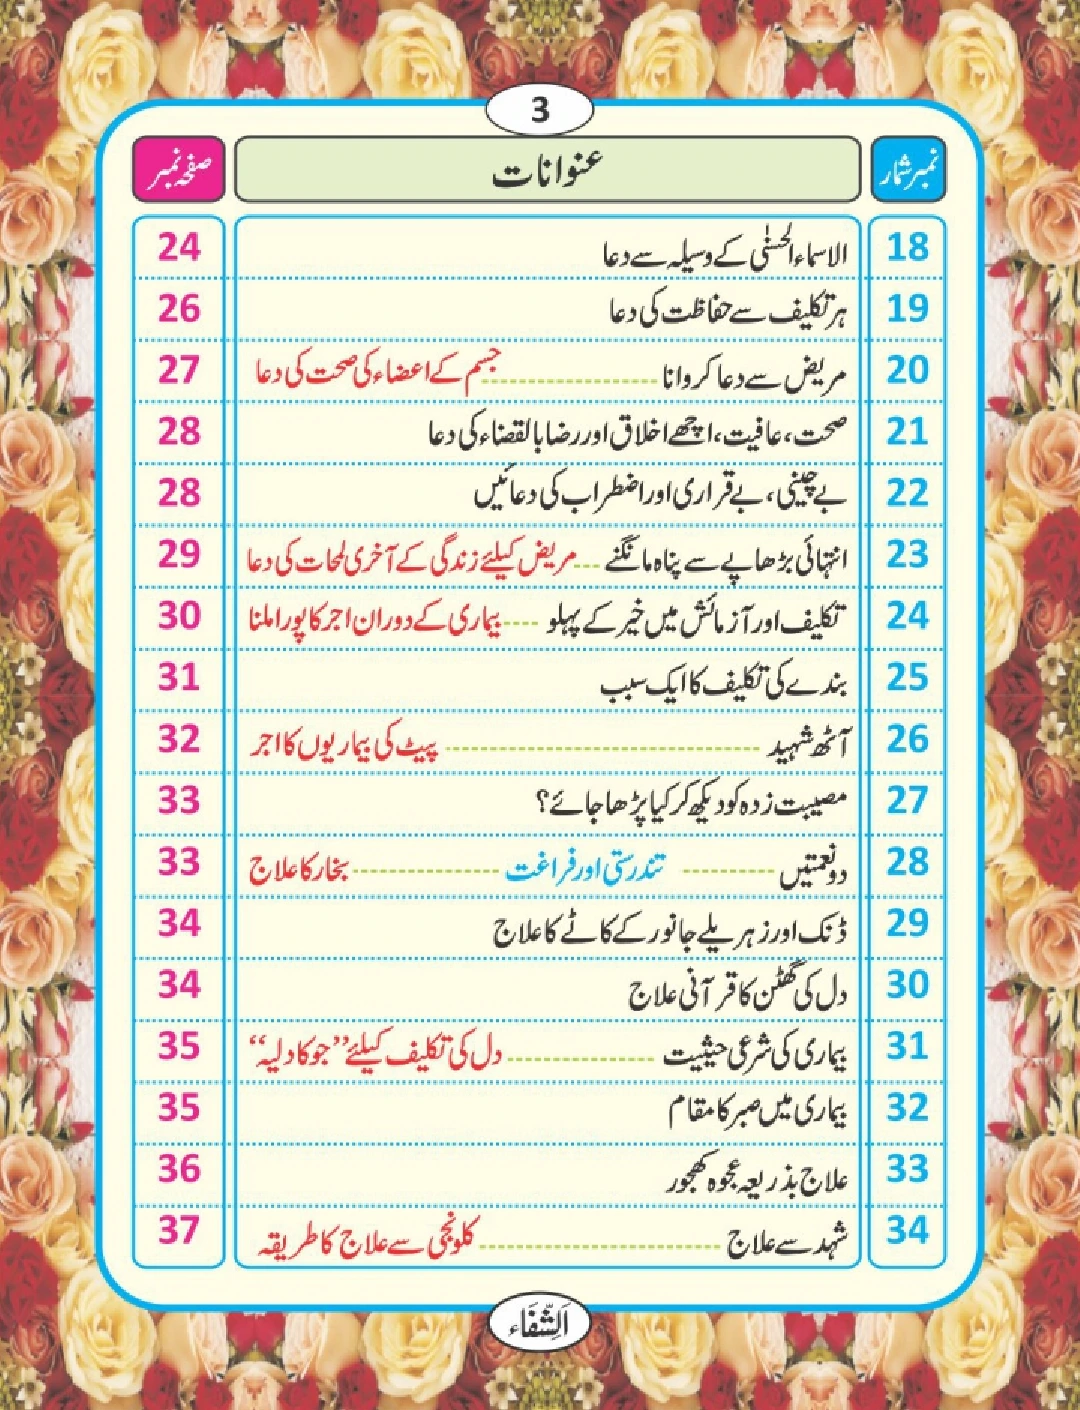 3
نمبر شمار عنوانات صفحہ نمبر
18 الاسماء الحسنٰی کے وسیلہ سے دعا 24
19 ہر تکلیف سے حفاظت کی دعا 26
20 مریض سے دعا کروانا ------------------ جسم کے اعضاء کی صحت کی دعا 27
21 صحت، عافیت، اچھے اخلاق اور رضا بالقضاء کی دعا 28
22 بے چینی، بے قراری اور اضطراب کی دعائیں 28
23 انتہائی بڑھاپے سے پناہ مانگنے --- مریض کیلئے زندگی کے آخری لمحات کی دعا 29
24 تکلیف اور آزمائش میں خیر کے پہلو ---- بیماری کے دوران اجر کا پورا ملنا 30
25 بندے کی تکلیف کا ایک سبب 31
26 آٹھ شہید -------------------------------- پیٹ کی بیماریوں کا اجر 32
27 مصیبت زدہ کو دیکھ کر کیا پڑھا جائے؟ 33
28 دو نعمتیں ---------- تندرستی اور فراغت --------------- بخار کا علاج 33
29 ڈنک اور زہریلے جانور کے کاٹے کا علاج 34
30 دل کی گھٹن کا قرآنی علاج 34
31 بیماری کی شرعی حیثیت --------------- دل کی تکلیف کیلئے ”جو کا دلیہ“ 35
32 بیماری میں صبر کا مقام 35
33 علاج بذریعہ عجوہ کھجور 36
34 شہد سے علاج ------------------------- کلونجی سے علاج کا طریقہ 37
اَلشِّفَاء